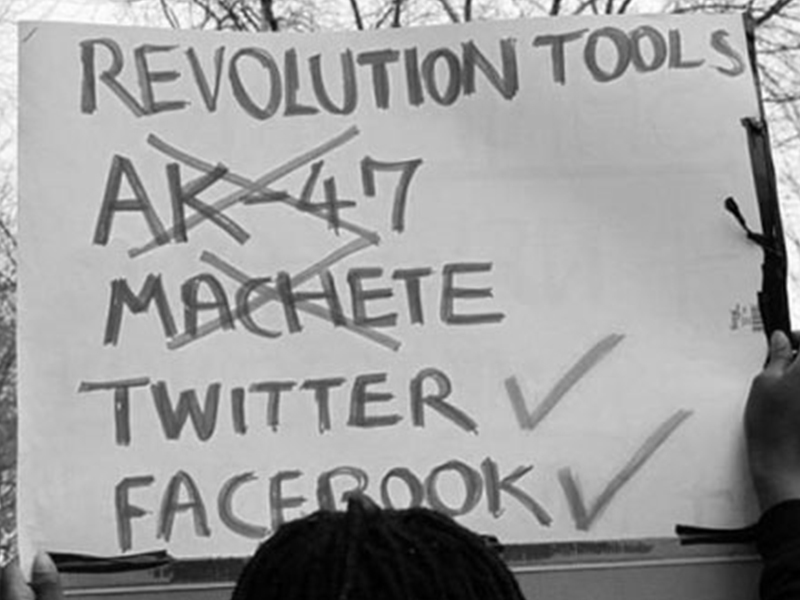 REVOLUTION TOOLS
AK-47
MACHETE
TWITTER ✓
FACEBOOK ✓